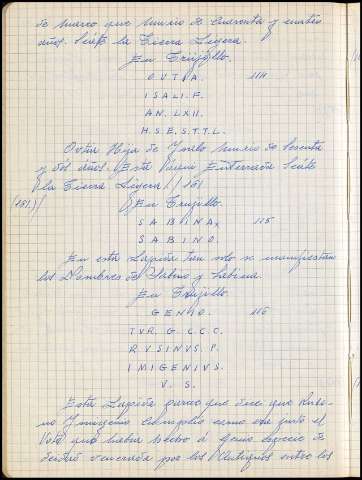 de Marco que Murio de Cuarenta y cuatro
años. Seate la Tierra Ligera.
En Trujillo.
O V T V A. 114
I S A L I. F.
A N. L X I I.
H. S. E. S. T. T. L.
Ovtva Hija de Ysalo Murio de Sesenta
y dos años. Esta Vaxin Enterrada Seate
la Tierra Ligera (/ 151
(151)/ En Trujillo.
S A B I N A 115
S A B I N O.
En esta Lapida tan solo se manifiestan
los Nombres de Sabino y Sabina.
En Trujillo.
G E N I O. 116
T V R. G. C. C. C.
R. V S I N V S. P.
I M I G E N I V S.
V. S.
Esta Lapida parece que dice que
cumplio como era justo el
Voto que habia hecho à Genio
venerada por los Antiguos entre los